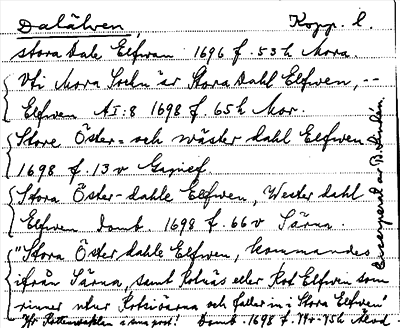 Dalälven, Kopp. l.
Stora Dahl Elfwen. 1696 f. 53 h Mora.
Uti Mora Sockn är Stora Dahl Elfwen, --
Elfwen AI:8 1698 f. 65 h Mor.
Store Öster- och wäster dahl Elfwen
1698 f. 13 v Gagnef.
Stora Öster-dahle Elfwen, Wester dahl
Elfwen Domb. 1698 f. 66 v Särna.
"Stora Öster dahle Elfwen, kommandes
ifrån Särna, samt Rotnäs eller Rot Elfwen som
rinner utur och faller in i Stora Elfwen"
Domb. 1698 f.
Excerperat av B. Lindén